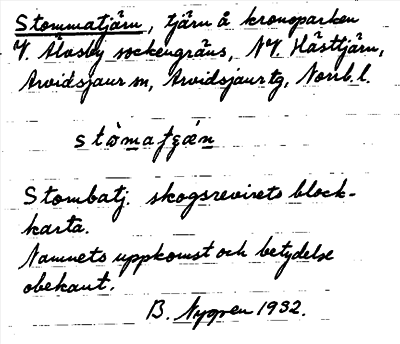 Stommatjärn, tjärn å kronoparken
V. Älvsby sockengräns, NV. Hästtjärn,
Arvidsjaur sn, Arvidsjaur tg, Norrb. l.
Stombatj. skogsrevirets block-
karta.
Namnets uppkomst och betydelse
obekant.
B. Nygren 1932.